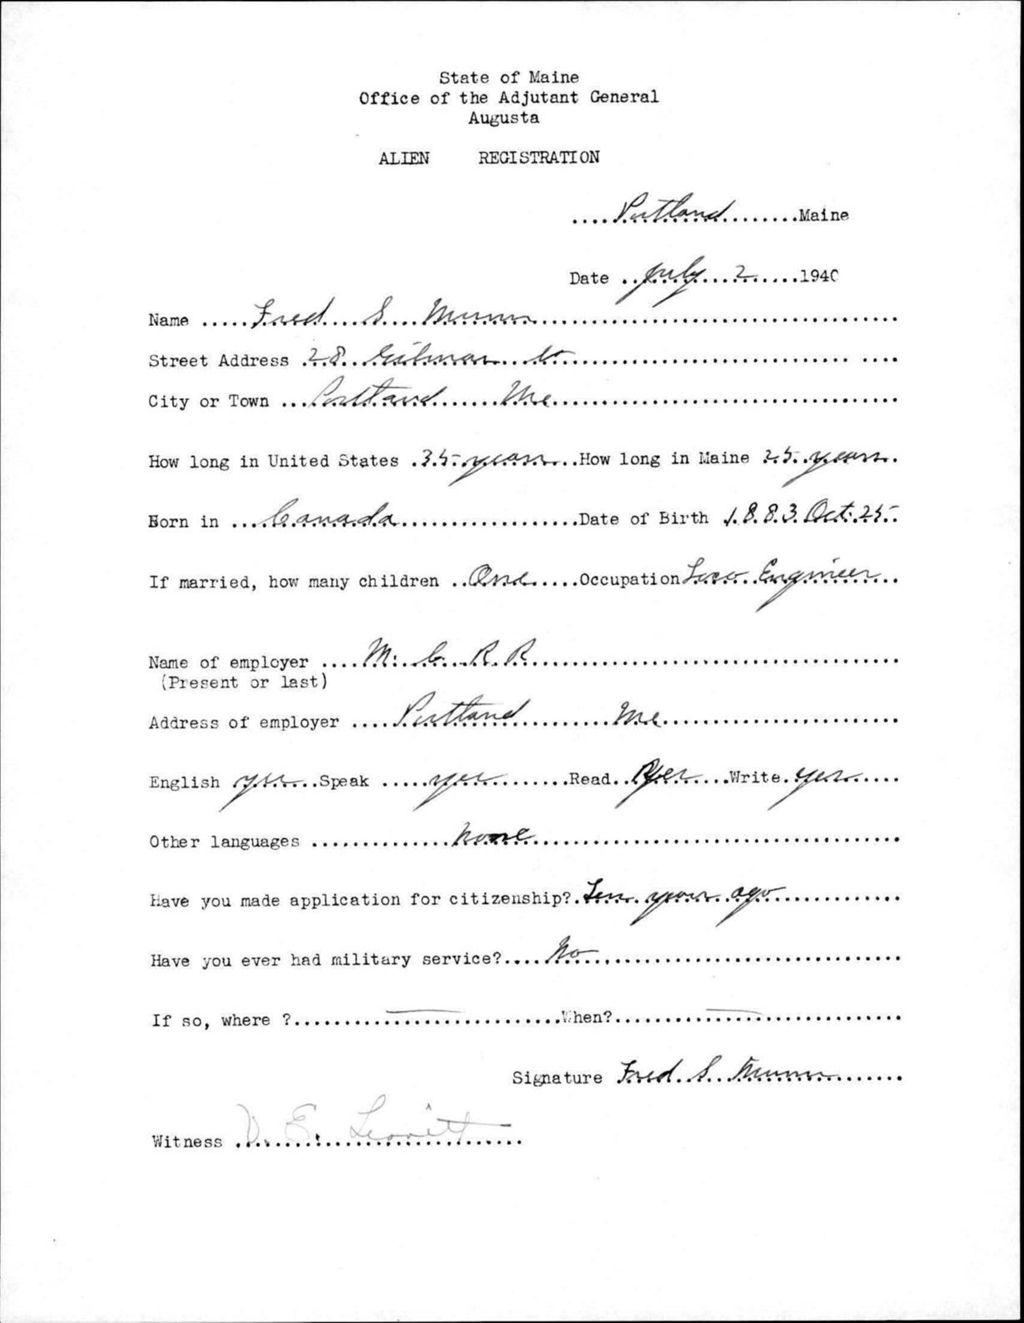 State of Maine
Office of the Adjutant General
Augusta
ALIEN REGISTRATION
....Portland........Maine
Date ..July...2......1940
Name .....Fred....S....Munn..............................
Street Address .28...Gilman...St..............................
City or Town ...Portland.......Me..............................
How long in United States .35.years...How long in Maine 25..years..
Born in ...Canada.....................Date of Birth 1883.Oct.25
If married, how many children ..One.....Occupation Loco..Engineer..
Name of employer ....M..C..R.R..............................
(Present or last)
Address of employer ....Portland...........Me..............................
English yes...Speak .....yes........Read..Yes....Write.yes.....
Other languages ...............None..............................
Have you made application for citizenship?.Ten..years..ago..............
Have you ever had military service?....No..............................
If so, where ?...............................When?..............................
Signature Fred.S..Munn........
Witness V. E. Leavitt